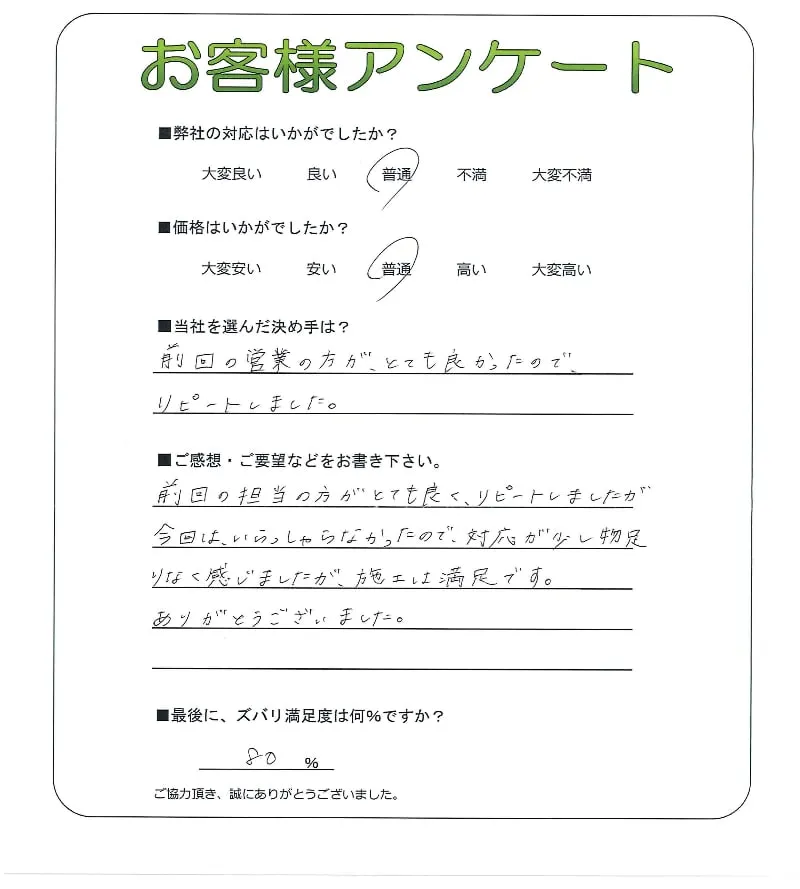 お客様アンケート
■弊社の対応はいかがでしたか？
大変良い 良い 普通 不満 大変不満
■価格はいかがでしたか？
大変安い 安い 普通 高い 大変高い
■当社を選んだ決め手は？
前回の営業の方が、とても良かったので、
リピートしました。
■ご感想・ご要望などをお書き下さい。
前回の担当の方がとても良く、リピートしましたが
今回は、いらっしゃらなかったので、対応が少し物足
りなく感じましたが、施工は満足です。
ありがとうございました。
■最後に、ズバリ満足度は何%ですか？
80 %
ご協力頂き、誠にありがとうございました。